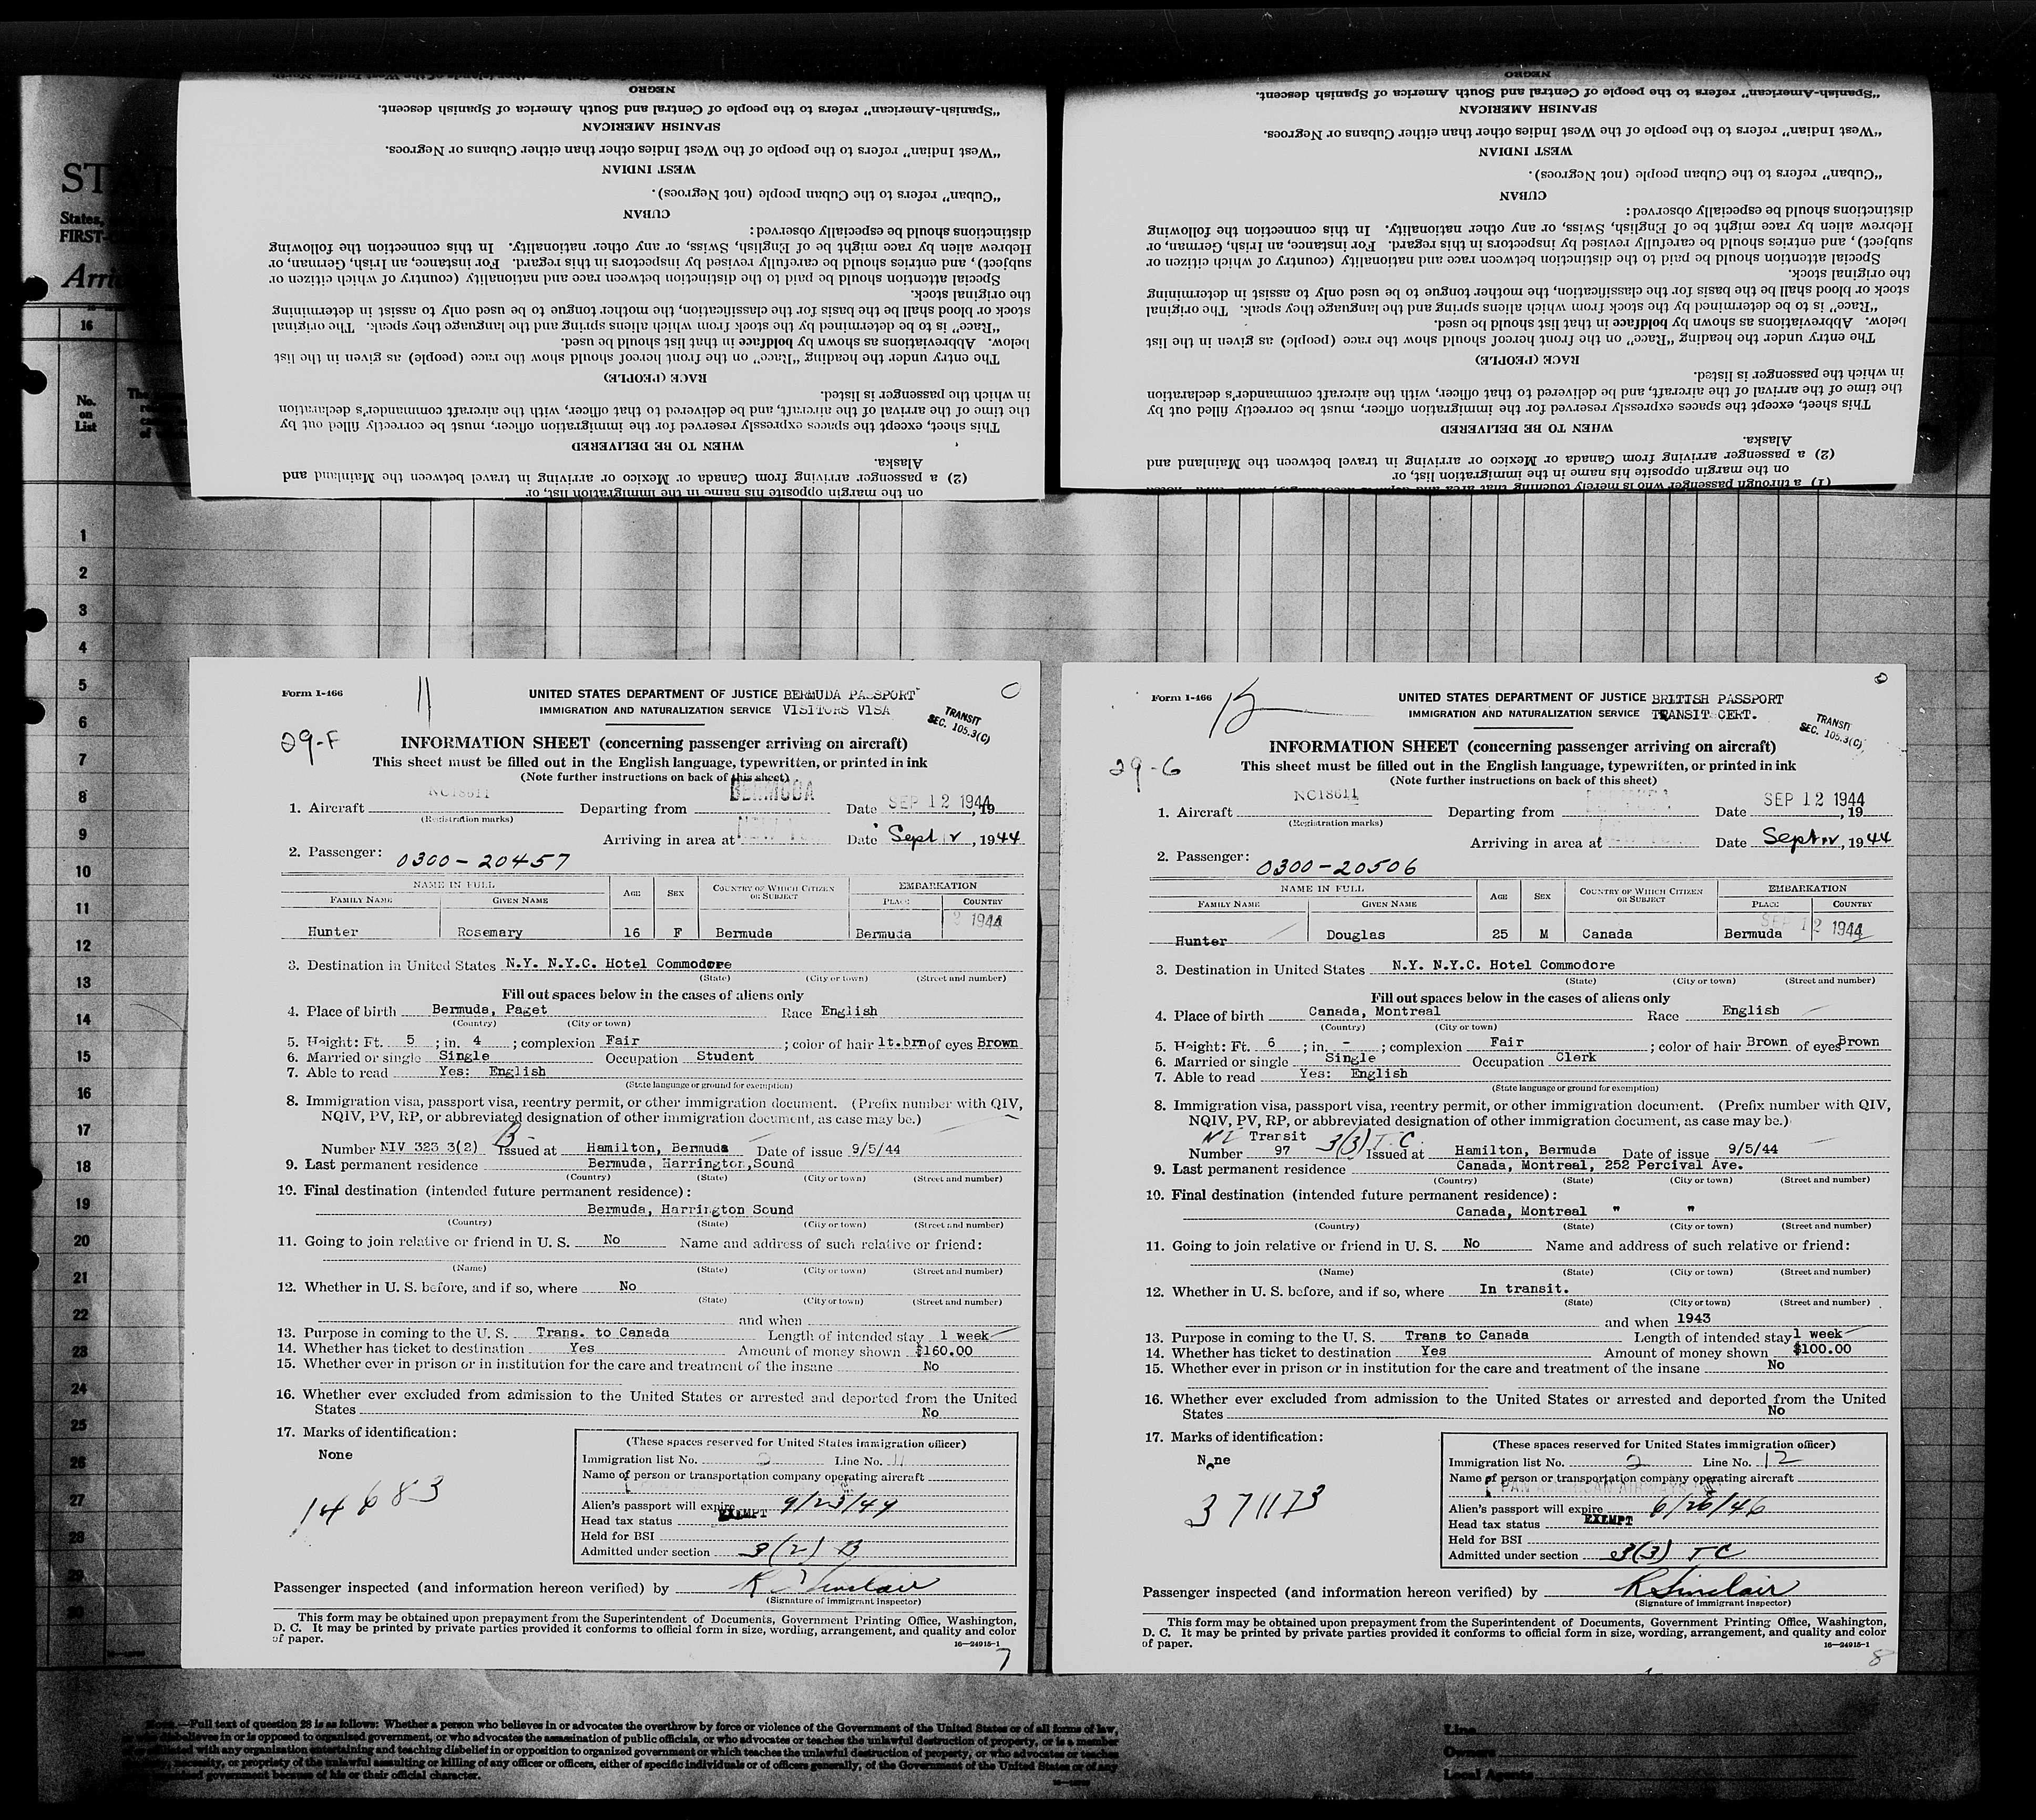 NEGRO
"Spanish-American" refers to the people of Central and South America of Spanish descent.
SPANISH AMERICAN
"West Indian" refers to the people of the West Indies other than either Cubans or Negroes.
WEST INDIAN
"Cuban" refers to the Cuban people (not Negroes).
CUBAN
distinctions should be especially observed:
Hebrew alien by race might be of English, Swiss, or any other nationality. In this connection the following
subject), and entries should be carefully revised by inspectors in this regard. For instance, an Irish, German, or
Special attention should be paid to the distinction between race and nationality (country of which citizen or
the original stock.
stock or blood shall be the basis for the classification, the mother tongue to be used only to assist in determining
"Race" is to be determined by the stock from which aliens spring and the language they speak. The original
below. Abbreviations as shown by boldface in that list should be used.
The entry under the heading "Race" on the front hereof should show the race (people) as given in the list
RACE (PEOPLE)
in which the passenger is listed.
the time of the arrival of the aircraft, and be delivered to that officer, with the aircraft commander's declaration
This sheet, except the spaces expressly reserved for the immigration officer, must be correctly filled out by
WHEN TO BE DELIVERED
Alaska.
(2) a passenger arriving from Canada or Mexico or arriving in travel between the Mainland and
on the margin opposite his name in the immigration list, or
NEGRO
"Spanish-American" refers to the people of Central and South America of Spanish descent.
SPANISH AMERICAN
"West Indian" refers to the people of the West Indies other than either Cubans or Negroes.
WEST INDIAN
"Cuban" refers to the Cuban people (not Negroes).
CUBAN
distinctions should be especially observed:
Hebrew alien by race might be of English, Swiss, or any other nationality. In this connection the following
subject), and entries should be carefully revised by inspectors in this regard. For instance, an Irish, German, or
Special attention should be paid to the distinction between race and nationality (country of which citizen or
the original stock.
stock or blood shall be the basis for the classification, the mother tongue to be used only to assist in determining
"Race" is to be determined by the stock from which aliens spring and the language they speak. The original
below. Abbreviations as shown by boldface in that list should be used.
The entry under the heading "Race" on the front hereof should show the race (people) as given in the list
RACE (PEOPLE)
in which the passenger is listed.
the time of the arrival of the aircraft, and be delivered to that officer, with the aircraft commander's declaration
This sheet, except the spaces expressly reserved for the immigration officer, must be correctly filled out by
WHEN TO BE DELIVERED
Alaska.
(2) a passenger arriving from Canada or Mexico or arriving in travel between the Mainland and
on the margin opposite his name in the immigration list, or
(1) a through passenger who is merely touching that area and
States,
FIRST-
16
No.
on
List
1
2
3
4
5
6
7
8
9
10
11
12
13
14
15
16
17
18
19
20
21
22
23
24
25
26
27
28
29
30
Form I-466
11
UNITED STATES DEPARTMENT OF JUSTICE BERMUDA PASSPORT
IMMIGRATION AND NATURALIZATION SERVICE VISITORS VISA
TRANSIT
SEC. 105.3(C)
29-F
INFORMATION SHEET (concerning passenger arriving on aircraft)
This sheet must be filled out in the English language, typewritten, or printed in ink
(Note further instructions on back of this sheet)
1. Aircraft NC18611 Departing from BERMUDA Date SEP 12 1944, 19
(Registration marks)
Arriving in area at Date Sept 12, 1944
2. Passenger: 0300-20457
NAME IN FULL AGE SEX COUNTRY OF WHICH CITIZEN OR SUBJECT EMBARKATION
FAMILY NAME GIVEN NAME PLACE COUNTRY
2 1944
Hunter Rosemary 16 F Bermuda Bermuda
3. Destination in United States N.Y. N.Y.C. Hotel Commodore
(State) (City or town) (Street and number)
Fill out spaces below in the cases of aliens only
4. Place of birth Bermuda, Paget Race English
(Country) (City or town)
5. Height: Ft. 5 ; in. 4 ; complexion Fair ; color of hair lt.brn of eyes Brown
6. Married or single Single Occupation Student
7. Able to read Yes: English
(State language or ground for exemption)
8. Immigration visa, passport visa, reentry permit, or other immigration document. (Prefix number with QIV,
NQIV, PV, RP, or abbreviated designation of other immigration document, as case may be.)
Number NIV 323 3(2) B Issued at Hamilton, Bermuda Date of issue 9/5/44
9. Last permanent residence Bermuda, Harrington,Sound
(Country) (State) (City or town) (Street and number)
10. Final destination (intended future permanent residence):
Bermuda, Harrington Sound
(Country) (State) (City or town) (Street and number)
11. Going to join relative or friend in U. S. No Name and address of such relative or friend:
(Name) (State) (City or town) (Street and number)
12. Whether in U. S. before, and if so, where No
(State) (City or town) (Street and number)
and when
13. Purpose in coming to the U. S. Trans. to Canada Length of intended stay 1 week
14. Whether has ticket to destination Yes Amount of money shown $160.00
15. Whether ever in prison or in institution for the care and treatment of the insane No
16. Whether ever excluded from admission to the United States or arrested and deported from the United
States No
17. Marks of identification:
None
14683
(These spaces reserved for United States immigration officer)
Immigration list No. 2 Line No. 11
Name of person or transportation company operating aircraft
Alien's passport will expire 9/23/49
Head tax status EXEMPT
Held for BSI
Admitted under section 3(2) B
Passenger inspected (and information hereon verified) by R Sinclair
(Signature of immigrant inspector)
This form may be obtained upon prepayment from the Superintendent of Documents, Government Printing Office, Washington,
D. C. It may be printed by private parties provided it conforms to official form in size, wording, arrangement, and quality and color
of paper.
16—24915-1
7
Form I-466
12
UNITED STATES DEPARTMENT OF JUSTICE BRITISH PASSPORT
IMMIGRATION AND NATURALIZATION SERVICE TRANSIT CERT.
TRANSIT
SEC. 105.3(C)
29-G
INFORMATION SHEET (concerning passenger arriving on aircraft)
This sheet must be filled out in the English language, typewritten, or printed in ink
(Note further instructions on back of this sheet)
1. Aircraft NC18611 Departing from Date SEP 12 1944, 19
(Registration marks)
Arriving in area at Date Sept 12, 1944
2. Passenger: 0300-20506
NAME IN FULL AGE SEX COUNTRY OF WHICH CITIZEN OR SUBJECT EMBARKATION
FAMILY NAME GIVEN NAME PLACE COUNTRY
SEP 12 1944
Hunter Douglas 25 M Canada Bermuda
3. Destination in United States N.Y. N.Y.C. Hotel Commodore
(State) (City or town) (Street and number)
Fill out spaces below in the cases of aliens only
4. Place of birth Canada, Montreal Race English
(Country) (City or town)
5. Height: Ft. 6 ; in. - ; complexion Fair ; color of hair Brown of eyes Brown
6. Married or single Single Occupation Clerk
7. Able to read Yes: English
(State language or ground for exemption)
8. Immigration visa, passport visa, reentry permit, or other immigration document. (Prefix number with QIV,
NQIV, PV, RP, or abbreviated designation of other immigration document, as case may be.)
NI Transit
Number 97 3(3) TC Issued at Hamilton, Bermuda Date of issue 9/5/44
9. Last permanent residence Canada, Montreal, 252 Percival Ave.
(Country) (State) (City or town) (Street and number)
10. Final destination (intended future permanent residence):
Canada, Montreal " "
(Country) (State) (City or town) (Street and number)
11. Going to join relative or friend in U. S. No Name and address of such relative or friend:
(Name) (State) (City or town) (Street and number)
12. Whether in U. S. before, and if so, where In transit.
(State) (City or town) (Street and number)
and when 1943
13. Purpose in coming to the U. S. Trans to Canada Length of intended stay 1 week
14. Whether has ticket to destination Yes Amount of money shown $100.00
15. Whether ever in prison or in institution for the care and treatment of the insane No
16. Whether ever excluded from admission to the United States or arrested and deported from the United
States No
17. Marks of identification:
None
371173
(These spaces reserved for United States immigration officer)
Immigration list No. 2 Line No. 12
Name of person or transportation company operating aircraft
PAN AMERICAN AIRWAYS
Alien's passport will expire 6/26/46
Head tax status EXEMPT
Held for BSI
Admitted under section 3(3) TC
Passenger inspected (and information hereon verified) by R Sinclair
(Signature of immigrant inspector)
This form may be obtained upon prepayment from the Superintendent of Documents, Government Printing Office, Washington,
D. C. It may be printed by private parties provided it conforms to official form in size, wording, arrangement, and quality and color
of paper.
16—24915-1
8
NOTE.—Full text of question 28 is as follows: Whether a person who believes in or advocates the overthrow by force or violence of the Government of the United States or of all forms of law,
disbelieves in or is opposed to organized government, or who advocates the assassination of public officials, or who advocates or teaches the unlawful destruction of property, or is a member
with any organization entertaining and teaching disbelief in or opposition to organized government or which teaches the unlawful destruction of property, or who advocates or teaches
property, or propriety of the unlawful assaulting or killing of any officer or officers, either of specific individuals or of officers generally, of the Government of the United States or of any
organized government because of his or their official character.
Line
Owners
Local Agents